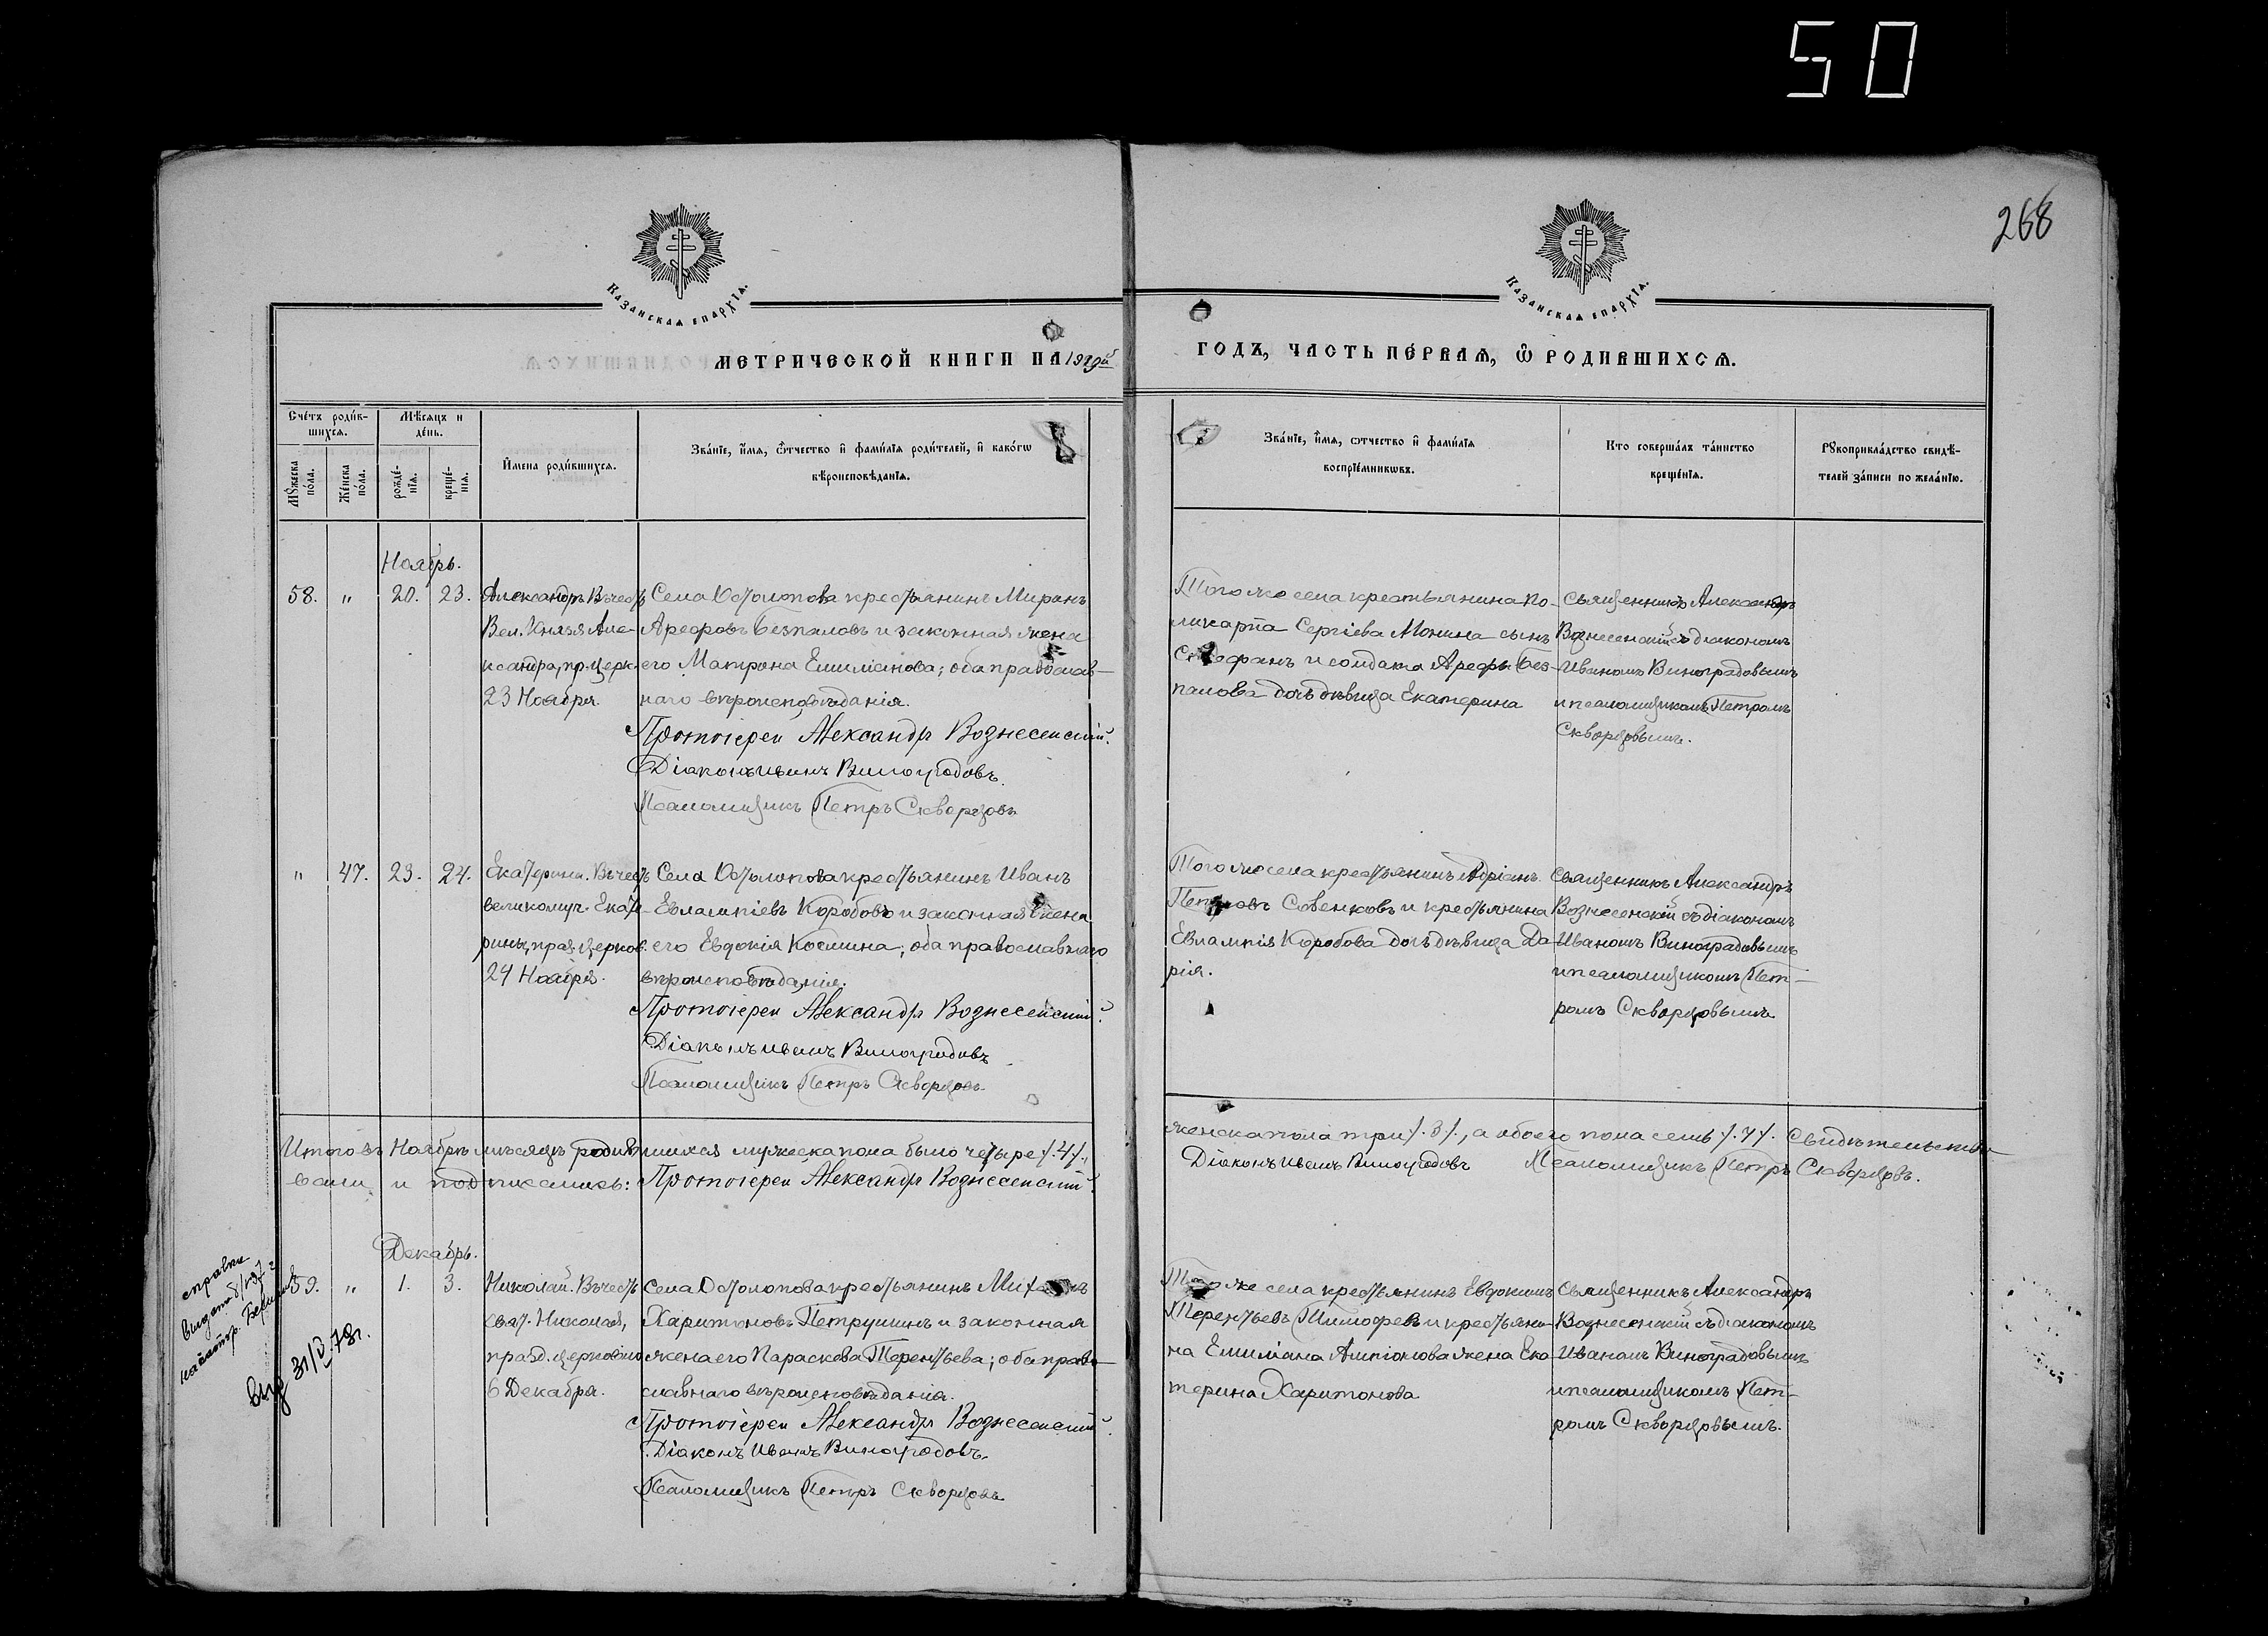 50
268
КАЗАНСКАЯ ЕПАРХІЯ.
КАЗАНСКАЯ ЕПАРХІЯ.
МЕТРИЧЕСКОЙ КНИГИ НА 1919й
ГОДЪ, ЧАСТЬ ПЕРВАЯ, Ѡ РОДИВШИХСЯ.
Счетъ родив-
шихся.
Мѣсяцъ и
день.
Мужеска
пола.
Женска
пола.
рожде-
нія.
креще-
нія.
Имена родившихся.
Званіе, имя, ѿтчество и фамилія родителей, и какогѡ
вѣроисповѣданія.
Званіе, имя, ѿтчество и фамилія
воспріемникѡвъ.
Кто совершалъ таинство
крещенія.
Рукоприкладство свидѣ-
телей записи по желанію.
Ноябрь.
58. " 20. 23.
Александръ. Въ честь
Вел. Князя Але-
ксандра, пр. церк.
23 Ноября.
Села Остолопова крестьянинъ Миронъ
Арефовъ Безпаловъ и законная жена
его Матрона Емиліанова; оба православ-
наго вѣроисповѣданія.
Протоіерей Александръ Вознесенскій.
Діаконъ Иванъ Виноградовъ
Псаломщикъ Петръ Скворцовъ
Того же села крестьянина По-
ликарпа Сергіева Монина сынъ
Стефанъ и солдата Арефы Без-
палова дочь дѣвица Екатерина
Священникъ Александръ
Вознесенскій съ діакономъ
Иваномъ Виноградовымъ
и псаломщикомъ Петромъ
Скворцовымъ.
" 47. 23. 24.
Екатерина. Въ честь
великомуч. Екате-
рины, праз. церков.
24 Ноября.
Села Остолопова крестьянинъ Иванъ
Евлампіевъ Коробовъ и законная жена
его Евдокія Космина; оба православнаго
вѣроисповѣданія.
Протоіерей Александръ Вознесенскій.
Діаконъ Иванъ Виноградовъ
Псаломщикъ Петръ Скворцовъ.
Того же села крестьянинъ Адріанъ
Петровъ Совенковъ и крестьянина
Евлампія Коробова дочь дѣвица Да-
рія.
Священникъ Александръ
Вознесенскій съ діакономъ
Иваномъ Виноградовымъ
и псаломщикомъ Пет-
ромъ Скворцовымъ
Итого въ Ноябрѣ мѣсяцѣ родившихся мужеска пола было четыре /.4/.,
женска пола три /.3/., а обоего пола семь /.7/. Свидѣтельство-
вали и подписались: Протоіерей Александръ Вознесенскій.
Діаконъ Иванъ Виноградовъ Псаломщикъ Петръ Скворцовъ.
Декабрь.
59. " 1. 3.
справка
выдана
выд 31/V.78г.
Николай. Въ честь
свят. Николая,
празд. церковію
6 Декабря.
Села Остолопова крестьянинъ Михаилъ
Харитоновъ Петрушинъ и законная
жена его Параскева Терентьева; оба право-
славнаго вѣроисповѣданія.
Протоіерей Александръ Вознесенскій.
Діаконъ Иванъ Виноградовъ.
Псаломщикъ Петръ Скворцовъ
Того же села крестьянинъ Евдокимъ
Терентьевъ Тимофеевъ и крестьяни-
на Емиліана жена Ека-
терина Харитонова
Священникъ Александръ
Вознесенскій съ діакономъ
Иваномъ Виноградовымъ
и псаломщикомъ Пет-
ромъ Скворцовымъ.